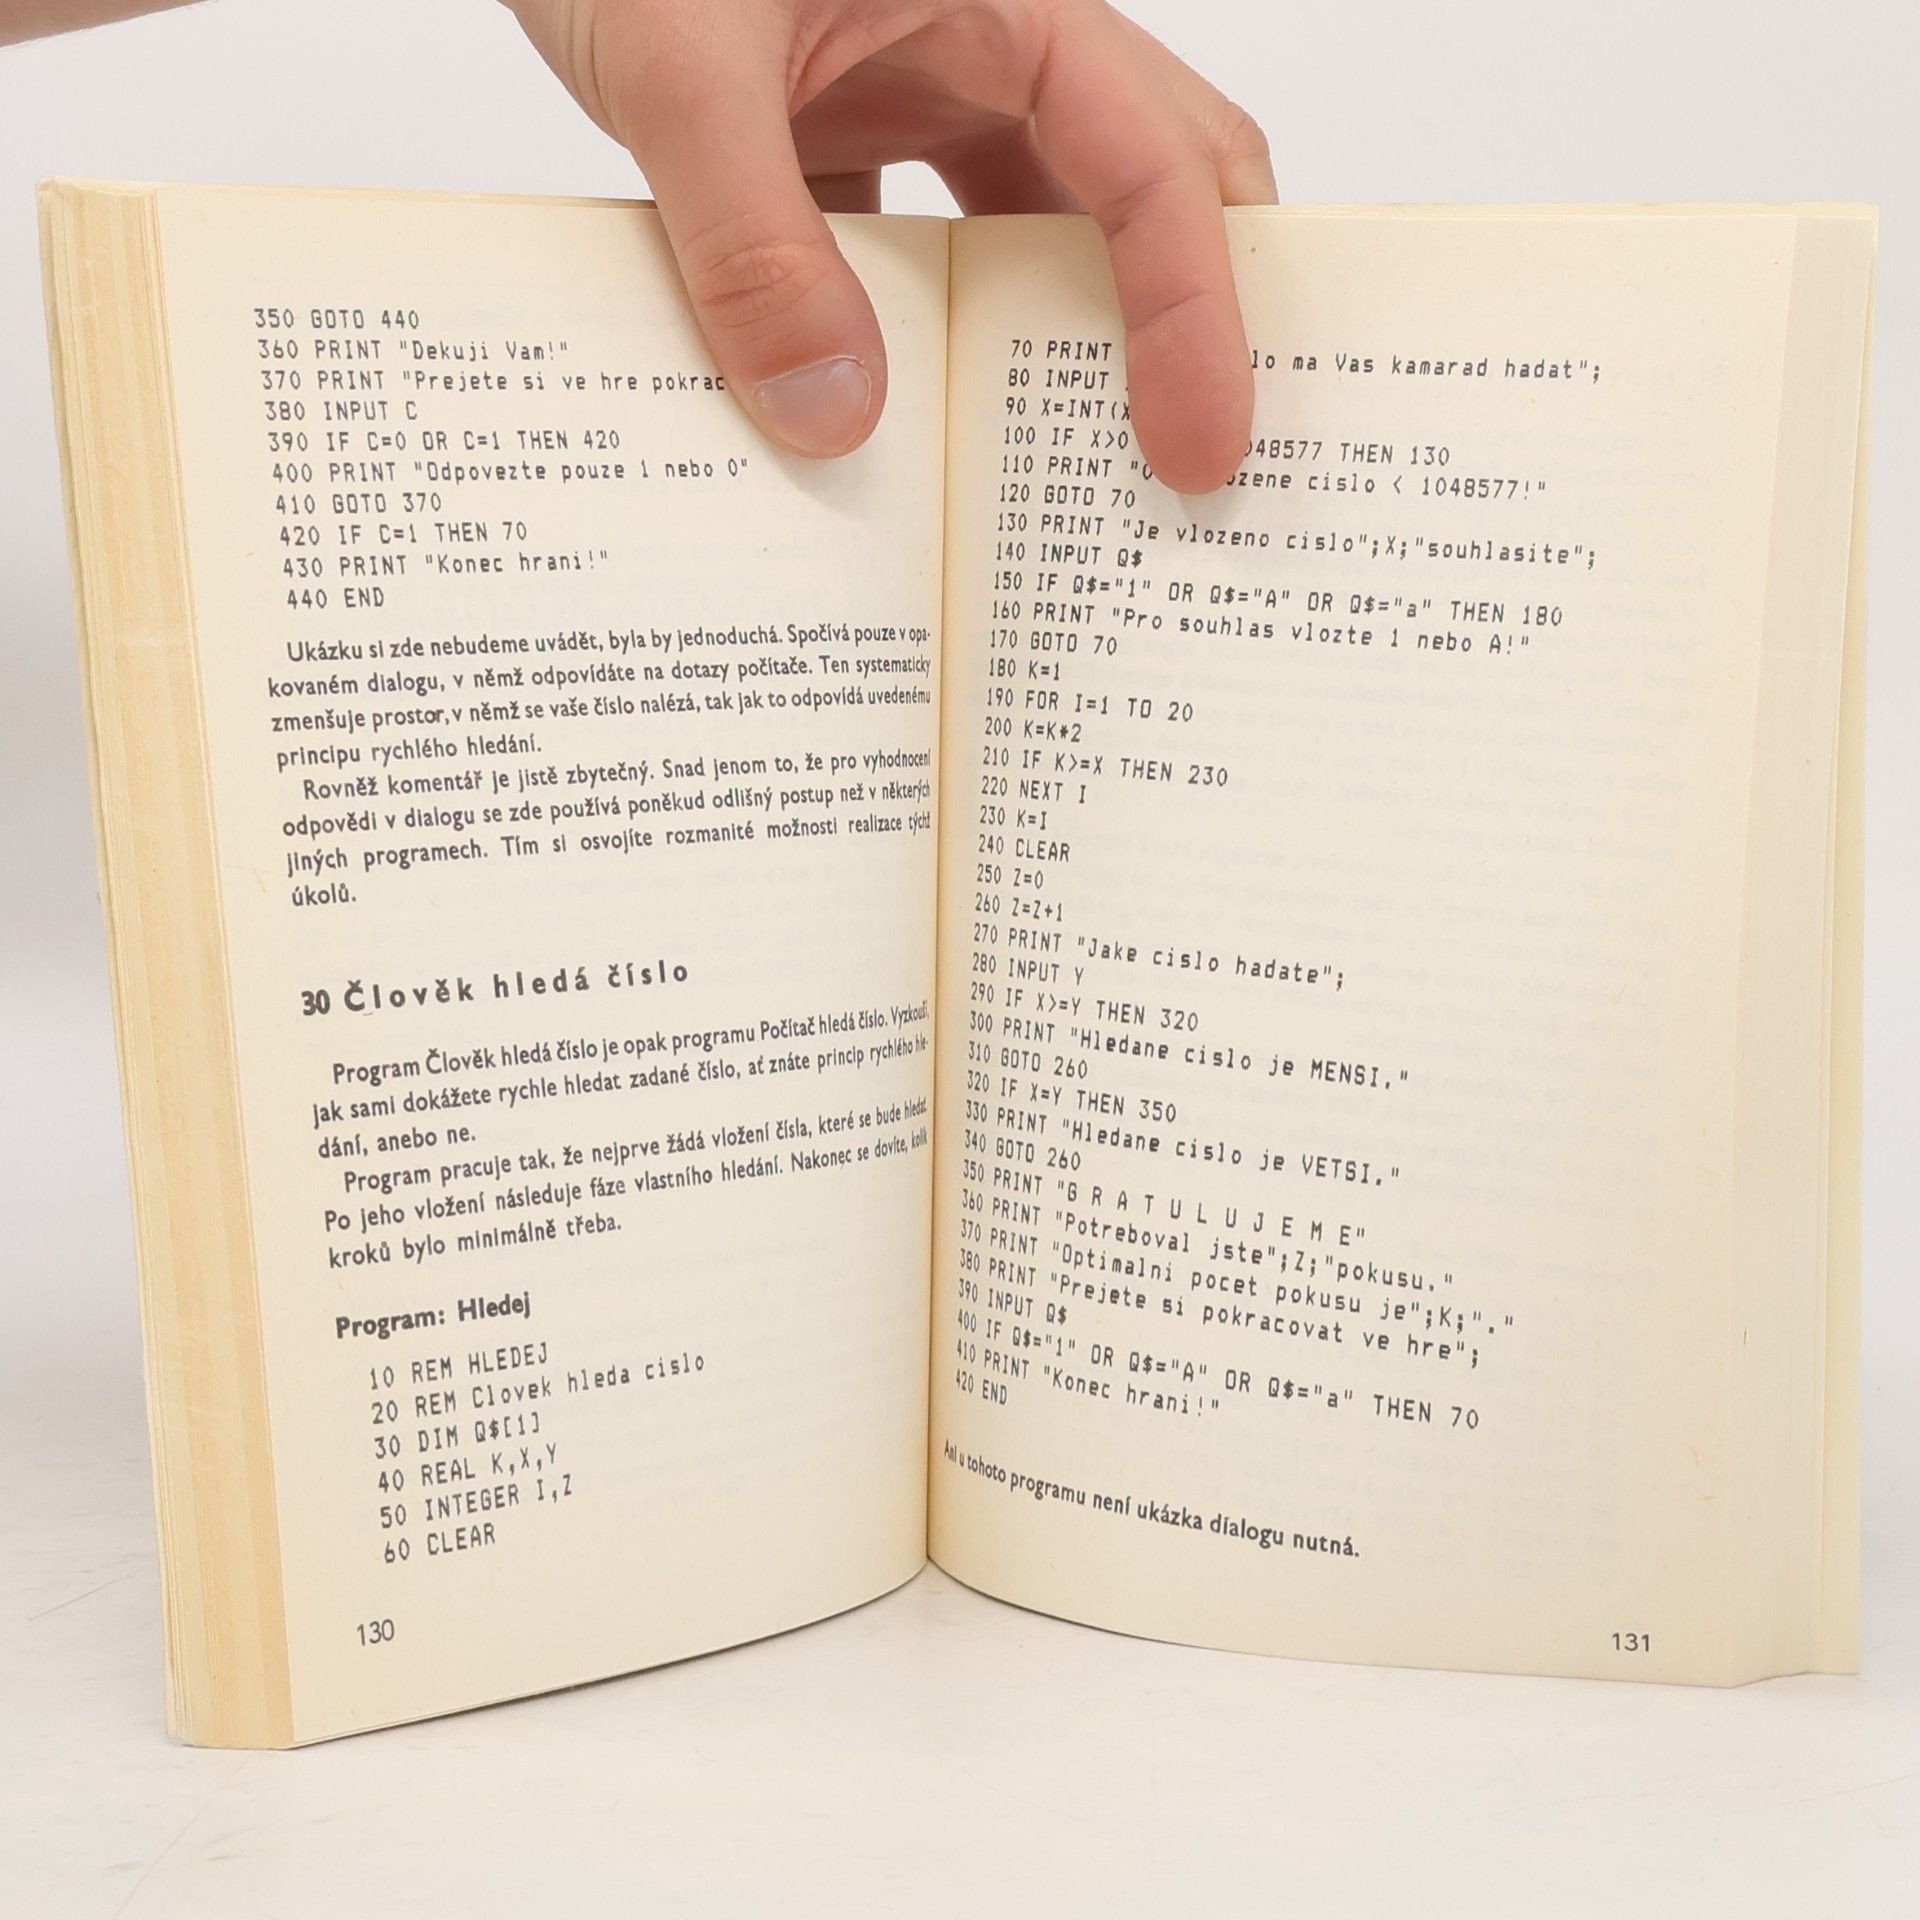 350 GOTO 440
360 PRINT "Dekuji Vam!"
370 PRINT "Prejete si ve hre
380 INPUT C
390 IF C=0 OR C=1 THEN 420
400 PRINT "Odpovezte pouze 1 nebo 0"
410 GOTO 370
420 IF C=1 THEN 70
430 PRINT "Konec hrani!"
440 END
Ukázku si zde nebudeme uvádět, byla by jednoduchá. Spočívá pouze v opa-
kovaném dialogu, v němž odpovídáte na dotazy počítače. Ten systematicky
zmenšuje prostor, v němž se vaše číslo nalézá, tak jak to odpovídá uvedenému
principu rychlého hledání.
Rovněž komentář je jistě zbytečný. Snad jenom to, že pro vyhodnocení
odpovědi v dialogu se zde používá poněkud odlišný postup než v některých
jiných programech. Tím si osvojíte rozmanité možnosti realizace týchž
úkolů.
30 Člověk hledá číslo
Program Člověk hledá číslo je opak programu Počítač hledá číslo. Vyzkouší,
jak sami dokážete rychle hledat zadané číslo, ať znáte princip rychlého hle-
dání, anebo ne.
Program pracuje tak, že nejprve žádá vložení čísla, které se bude hledat.
Po jeho vložení následuje fáze vlastního hledání. Nakonec se dovíte, kolik
kroků bylo minimálně třeba.
Program: Hledej
10 REM HLEDEJ
20 REM Clovek hleda cislo
30 DIM Q$[1]
40 REAL K,X,Y
50 INTEGER I,Z
60 CLEAR
130
70 PRINT ma Vas kamarad hadat";
80 INPUT
90 X=INT(X
100 IF X>0 048577 THEN 130
110 PRINT cislo < 1048577!"
120 GOTO 70
130 PRINT "Je vlozeno cislo";X;"souhlasite";
140 INPUT Q$
150 IF Q$="1" OR Q$="A" OR Q$="a" THEN 180
160 PRINT "Pro souhlas vlozte 1 nebo A!"
170 GOTO 70
180 K=1
190 FOR I=1 TO 20
200 K=K*2
210 IF K>=X THEN 230
220 NEXT I
230 K=I
240 CLEAR
250 Z=0
260 Z=Z+1
270 PRINT "Jake cislo hadate";
280 INPUT Y
290 IF X>=Y THEN 320
300 PRINT "Hledane cislo je MENSI."
310 GOTO 260
320 IF X=Y THEN 350
330 PRINT "Hledane cislo je VETSI."
340 GOTO 260
350 PRINT "G R A T U L U J E M E"
360 PRINT "Potreboval jste";Z;"pokusu."
370 PRINT "Optimalni pocet pokusu je";K;"."
380 PRINT "Prejete si pokracovat ve hre";
390 INPUT Q$
400 IF Q$="1" OR Q$="A" OR Q$="a" THEN 70
410 PRINT "Konec hrani!"
420 END
Ani u tohoto programu není ukázka dialogu nutná.
131